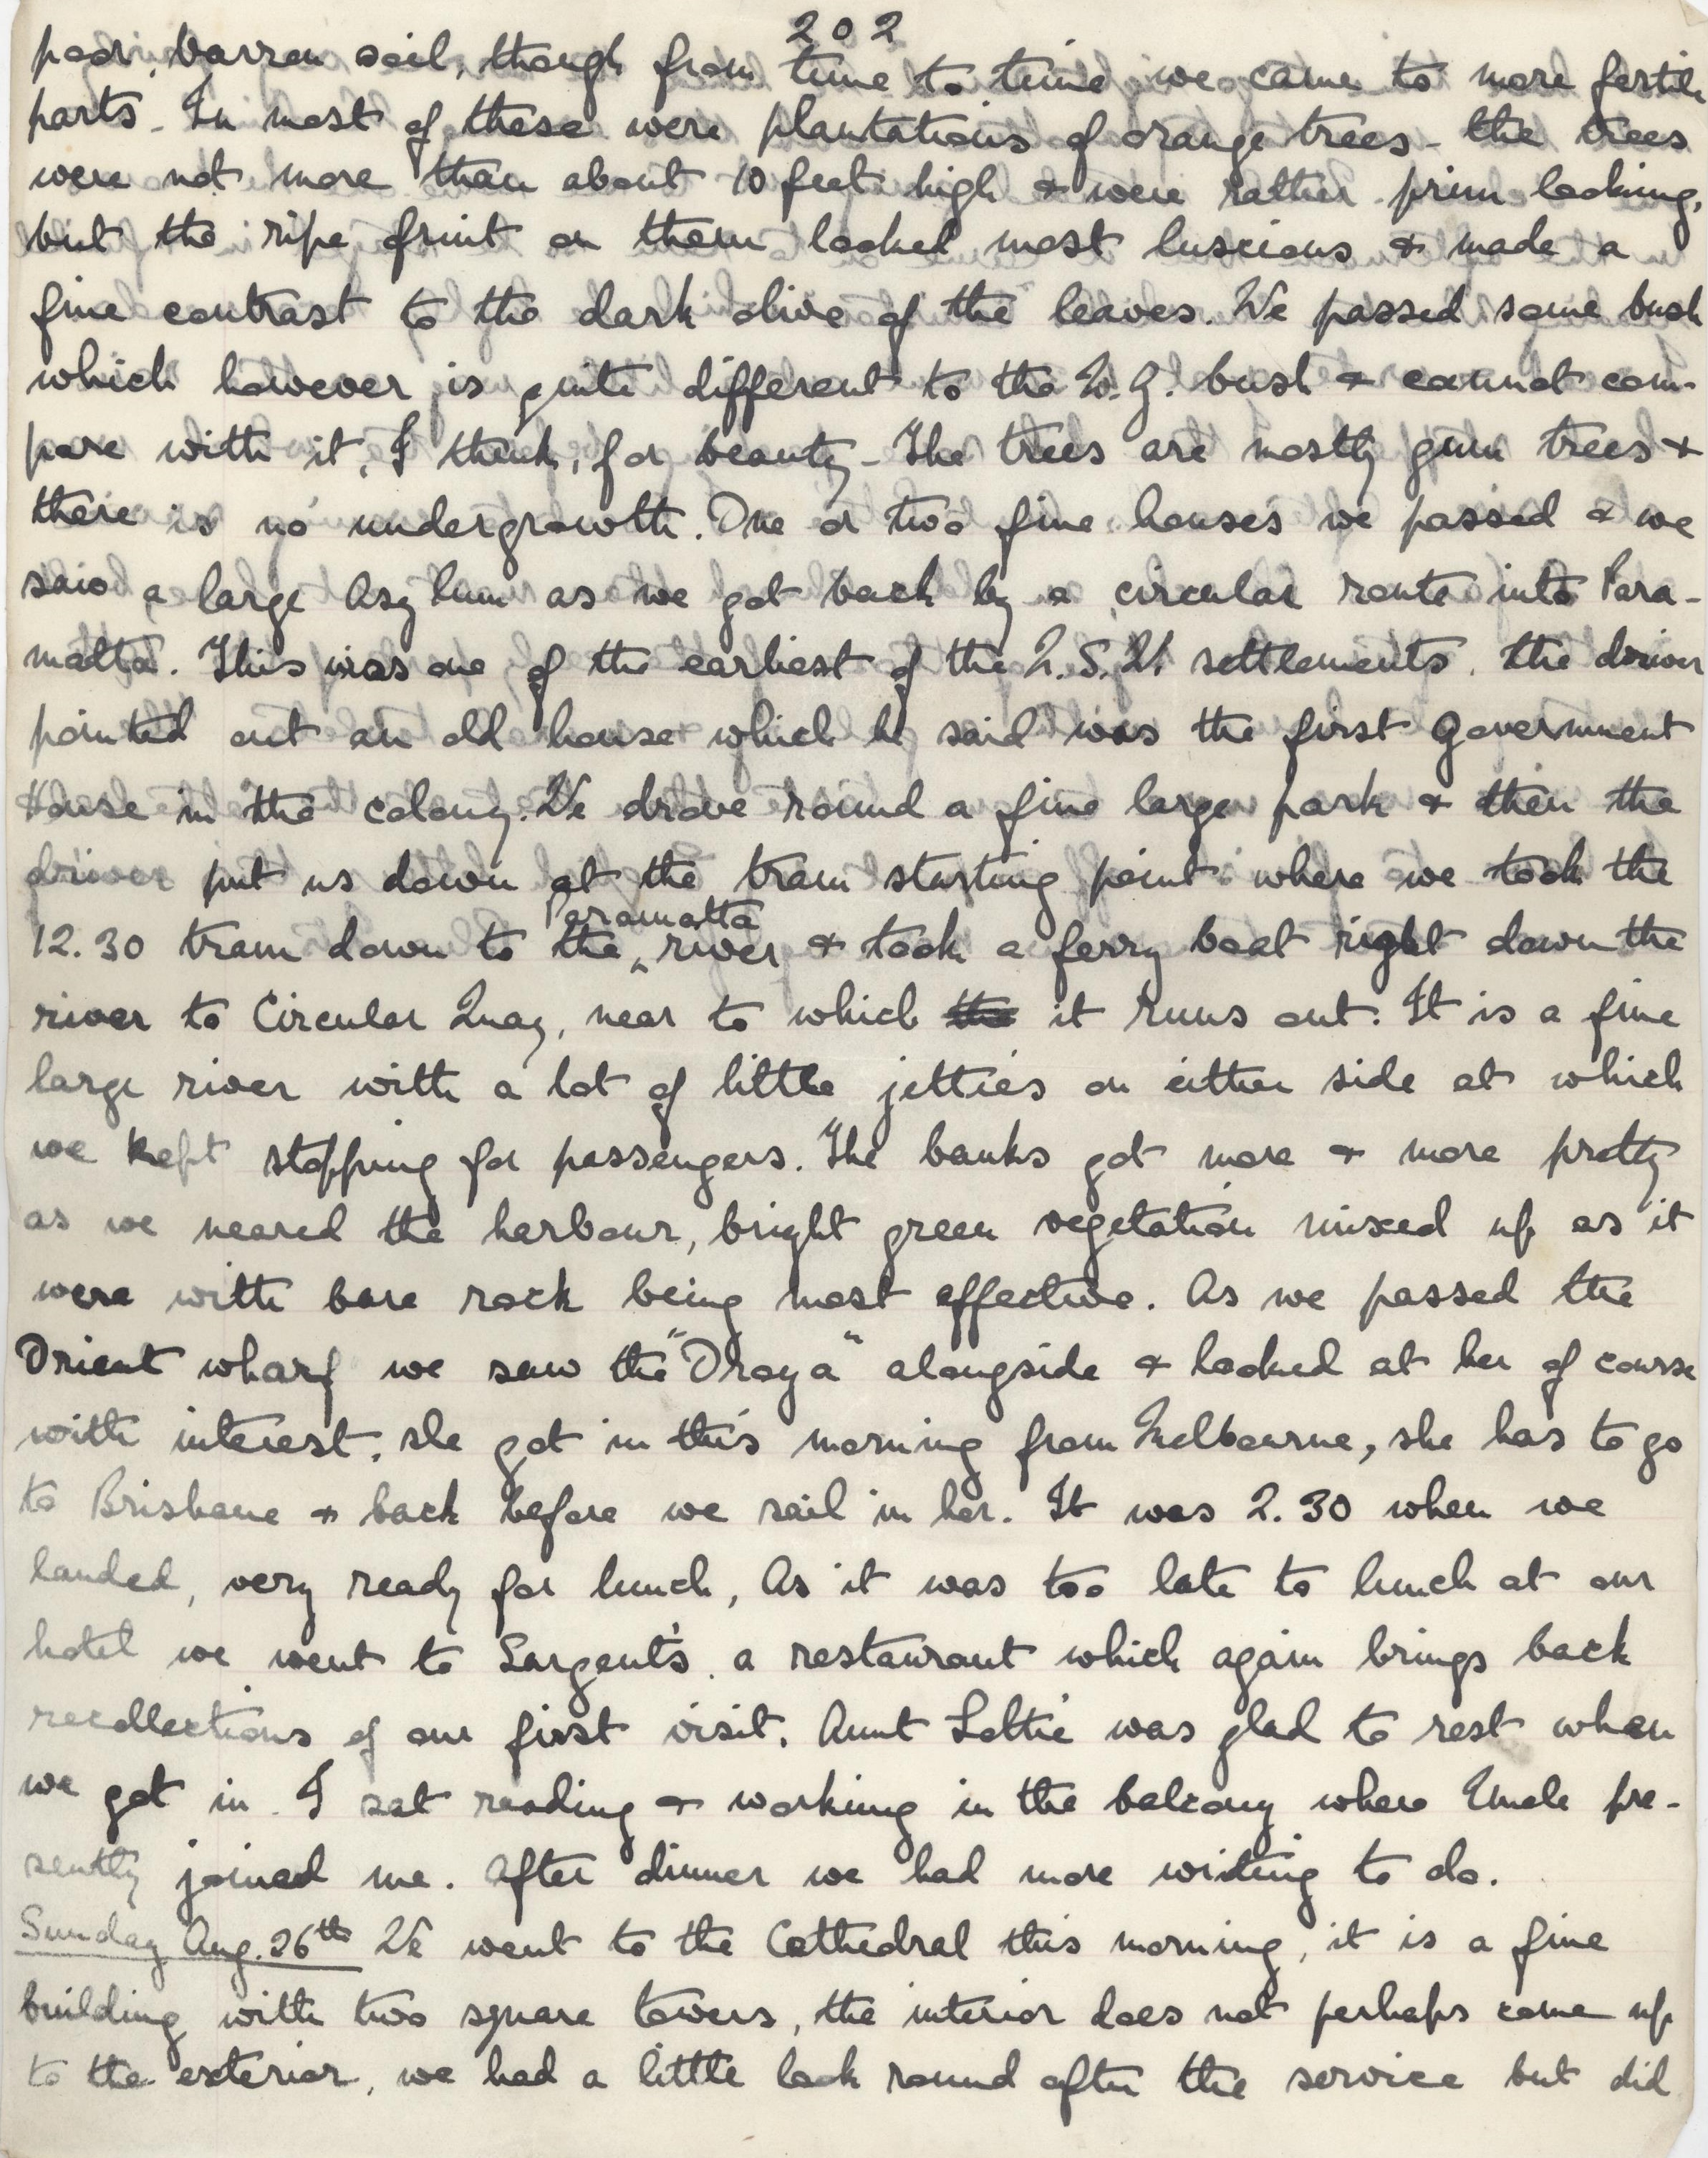 202
poor, barren soil, though from time to time we came to more fertile
parts - In most of these were plantations of orange trees - the trees
were not more than about 10 feet high & were rather prim looking,
but the ripe fruit on them looked most luscious & made a
fine contrast to the dark olive of the leaves. We passed some bush
which however is quite different to the N.Z. bush & cannot com-
pare with it, I think, for beauty - The trees are mostly gum trees &
there is no undergrowth. One or two fine houses we passed & we
saw a large Asylum as we got back by a circular route into Para-
matta. This was one of the earliest of the N.S.W. settlements. the driver
pointed out an old house which he said was the first Government
House in the colony. We drove round a fine large park & then the
driver put us down at the tram starting point where we took the
12.30 tram down to the Paramatta river & took a ferry boat right down the
river to Circular Quay, near to which the it runs out. It is a fine
large river with a lot of little jetties on either side at which
we kept stopping for passengers. The banks got more & more pretty
as we neared the harbour, bright green vegetation mixed up as it
were with bare rock being most effective. As we passed the
Orient wharf we saw the "Oroya" alongside & looked at her of course
with interest, she got in this morning from Melbourne, she has to go
to Brisbane & back before we sail in her. It was 2.30 when we
landed, very ready for lunch, As it was too late to lunch at our
hotel we went to Sargent's, a restaurant which again brings back
recollections of our first visit. Aunt Lottie was glad to rest when
we got in. I sat reading & working in the balcony where Uncle pre-
sently joined me. After dinner we had more writing to do.
Sunday Aug. 26th We went to the Cathedral this morning, it is a fine
building with two square towers, the interior does not perhaps come up
to the exterior, we had a little look round after the service but did